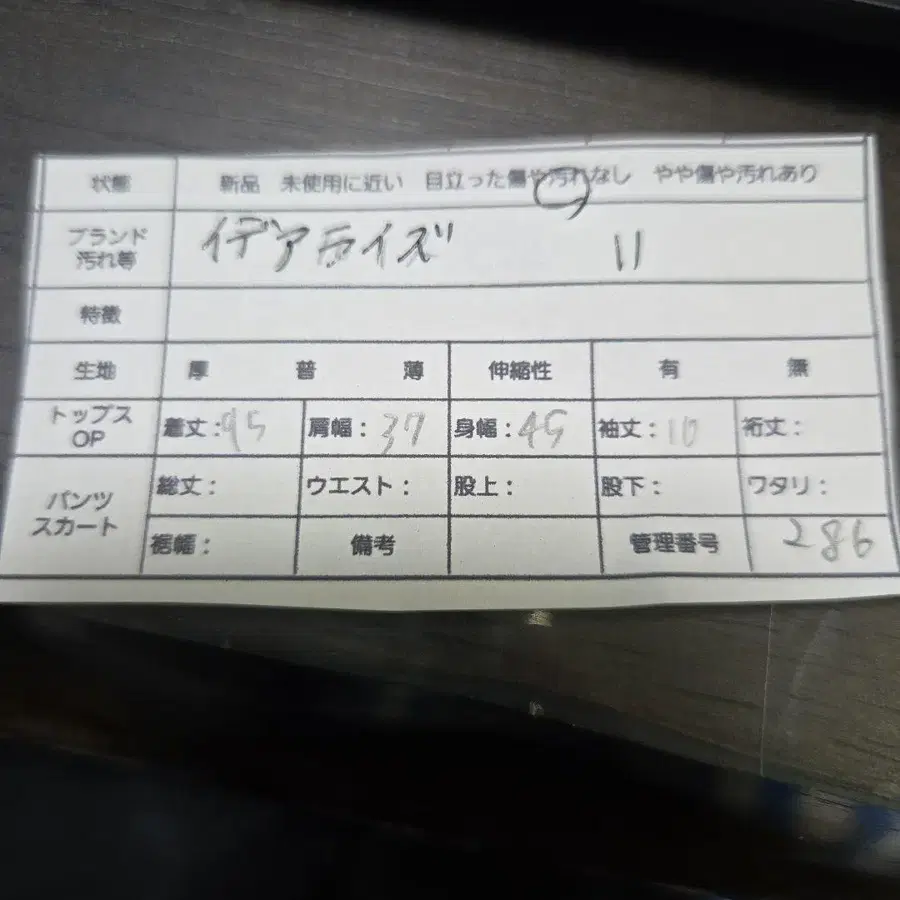 状態 新品 未使用に近い 目立った傷や汚れなし やや傷や汚れあり
ブランド
汚れ等 イデアライズ 11
特徴
生地 厚 普 薄 伸縮性 有 無
トップス
OP 着丈:95 肩幅:37 身幅:45 袖丈:10 裄丈:
パンツ
スカート 総丈: ウエスト: 股上: 股下: ワタリ:
裾幅: 備考 管理番号 286